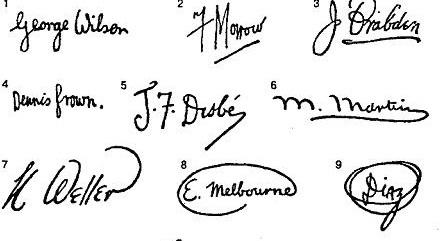 1 George Wilson
2 F Morrow
3 J Brabden
4 Dennis frown.
5 J. F. Desbé
6 M. Martin
7 K Weller
8 E. Melbourne
9 Diaz